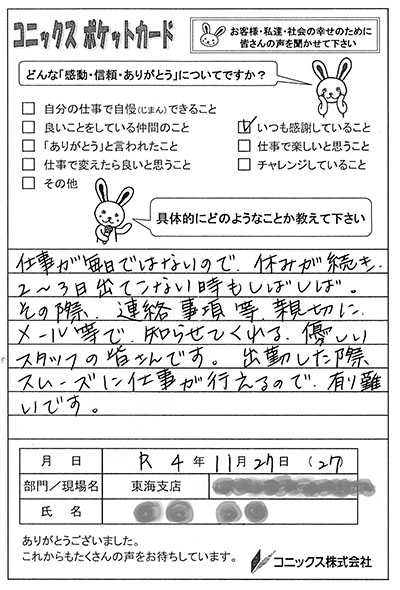 コニックス ポケットカード
お客様・私達・社会の幸せのために
皆さんの声を聞かせて下さい
どんな「感動・信頼・ありがとう」についてですか？
自分の仕事で自慢(じまん)できること
良いことをしている仲間のこと
いつも感謝していること
「ありがとう」と言われたこと
仕事で楽しいと思うこと
仕事で変えたら良いと思うこと
チャレンジしていること
その他
具体的にどのようなことか教えて下さい
仕事が毎日ではないので、休みが続き、
2～3日出てこない時もしばしば。
その際、連絡事項等、親切に、
メール等で、知らせてくれる、優しい
スタッフの皆さんです。出勤した際
スムーズに仕事が行えるので、有り難
いです。
月 日 R 4年 11月27日 (27
部門／現場名 東海支店
氏 名
ありがとうございました。
これからもたくさんの声をお待ちしています。
コニックス株式会社